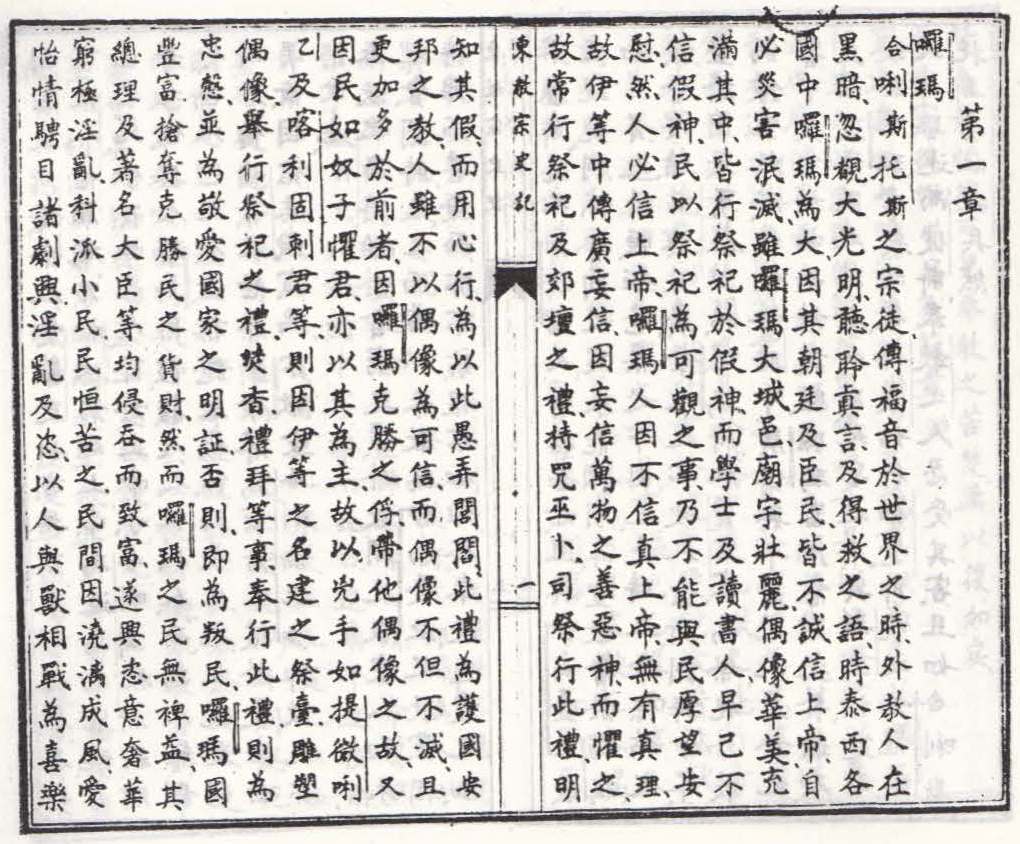 第一章
囉瑪
合唎斯托斯之宗徒傳福音於世界之時、外教人在
黑暗、忽覩大光明、聽聆真言、及得救之語、時泰西各
國中囉瑪為大、因其朝廷及臣民、皆不誠信上帝、自
必災害泯滅、雖囉瑪大城邑、廟宇壯麗、偶像華美、充
滿其中、皆行祭祀於假神、而學士及讀書人、早已不
信假神、民以祭祀為可觀之事、乃不能與民厚望安
慰、然人必信上帝、囉瑪人因不信真上帝、無有真理、
故伊等中傳廣妄信、因妄信萬物之善惡神、而懼之、
故常行祭祀及郊壇之禮、持咒巫卜、司祭行此禮、明
東教宗史記
一
知其假、而用心行、為以此愚弄閭閻、此禮為護國安
邦之教、人雖不以偶像為可信、而偶像不但不滅、且
更加多於前者、因囉瑪克勝之俘、帶他偶像之故、又
因民如奴子懼君、亦以其為主、故以兇手如提微唎
乙及喀利固剌君等、則因伊等之名建之祭臺、雕塑
偶像、舉行祭祀之禮、焚香、禮拜等事、奉行此禮、則為
忠慤、並為敬愛國家之明証、否則、即為叛民、囉瑪國
豐富、搶奪克勝民之貨財、然而囉瑪之民無裨益、其
總理及著名大臣等、均侵吞而致富、遂興恣意奢華
窮極淫亂、科派小民、民恒苦之、民間因澆漓成風、愛
怡情騁目諸劇、興淫亂及恣、以人與獸相戰為喜樂